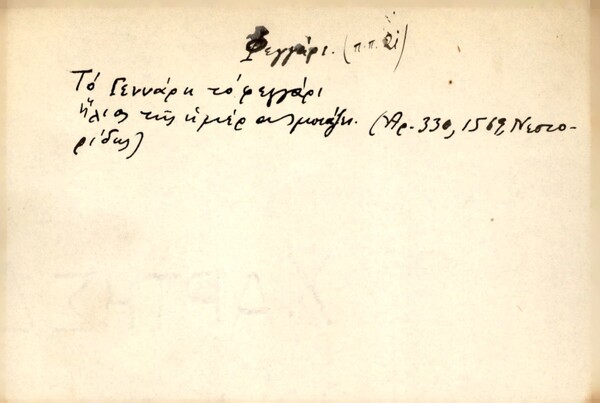 Φεγγάρι. (π.π. 2i)
Τό Γεννάρη τό φεγγάρι
ἥλιος τῆς ἡμέρας μοιάζει. (Ἀρ. 330, 1569, Νεστο-
ρίδης)